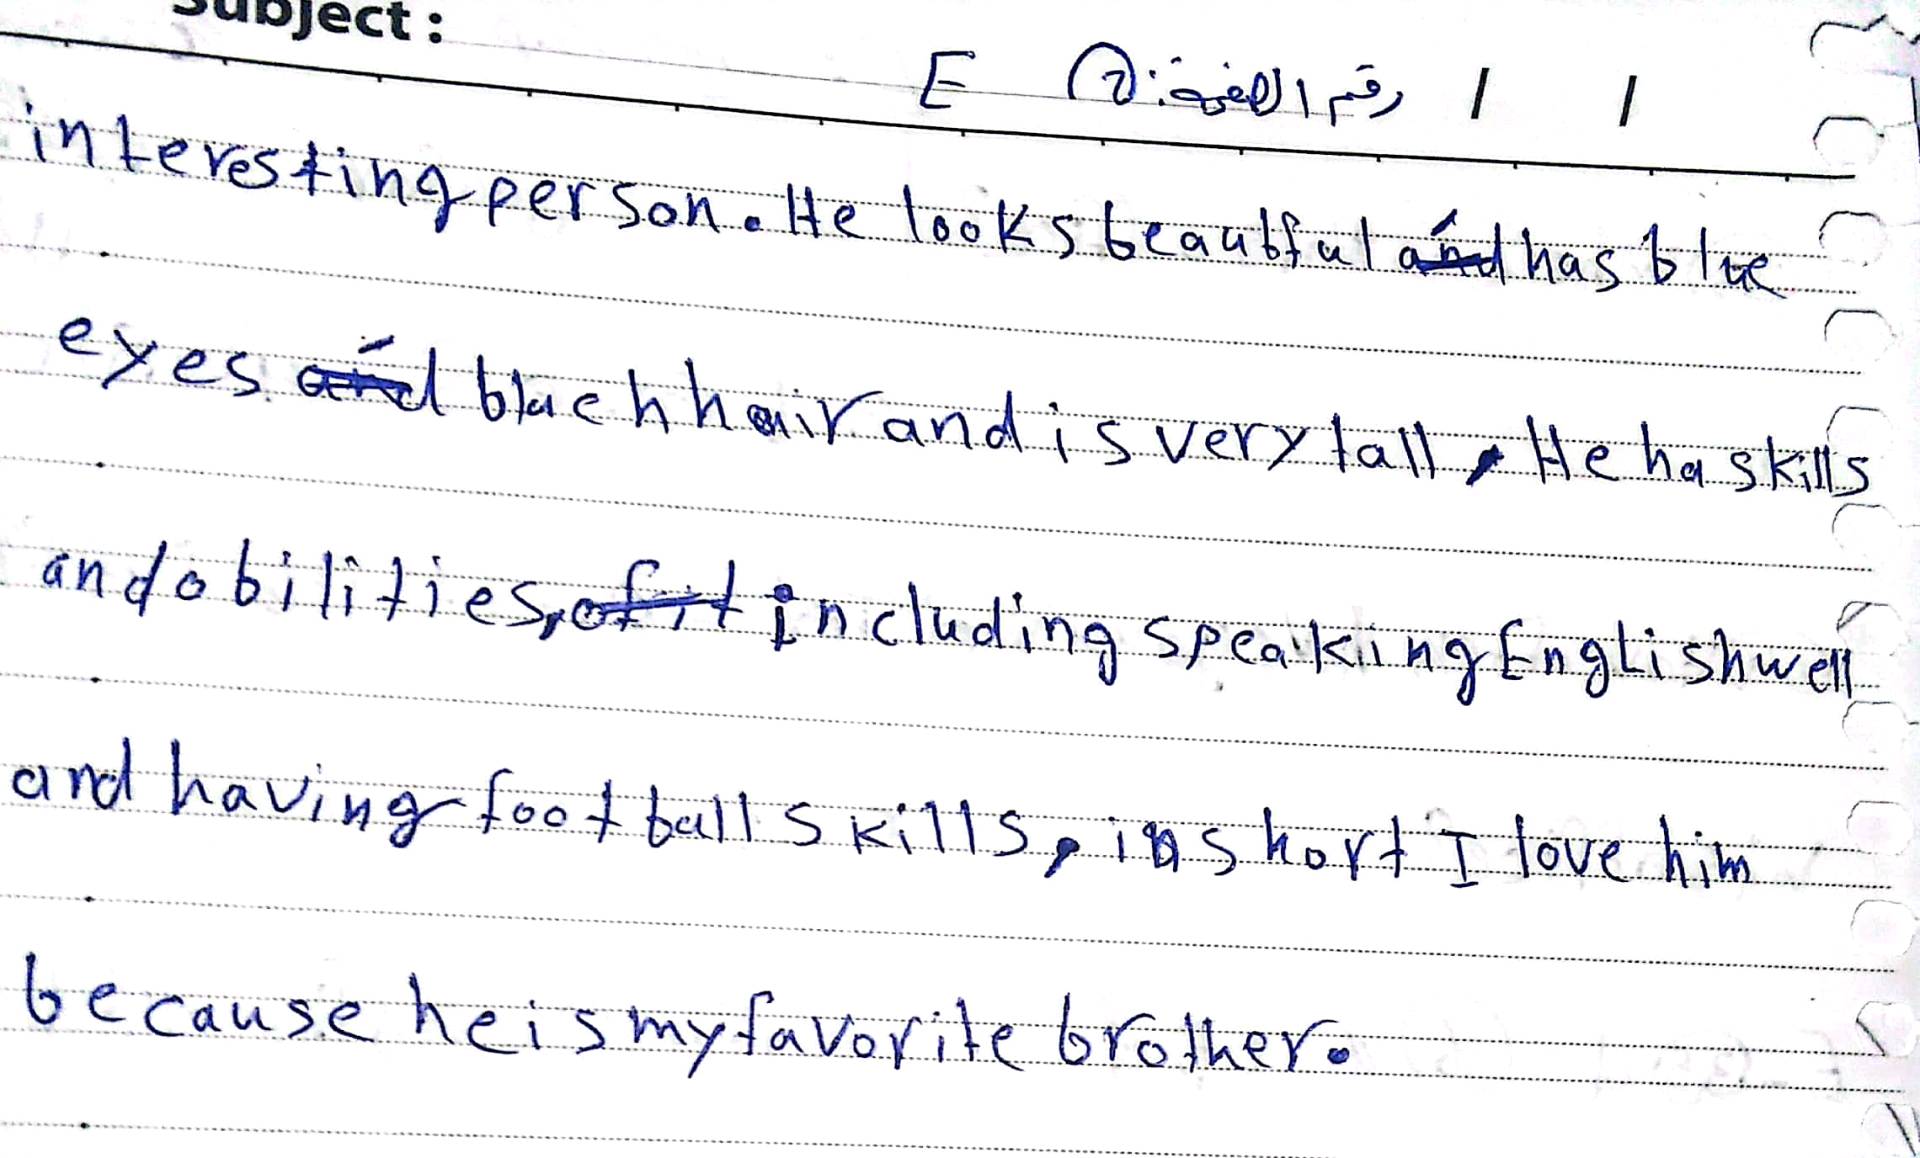 Subject :
E رقم الصفحة: 2 / /
interesting person. He looks beautful and has blue
eyes and blach hair and is very tall, He ha skills
and obilities, including speaking English well
and having football skills, in short I love him
because he is my favorite brother.